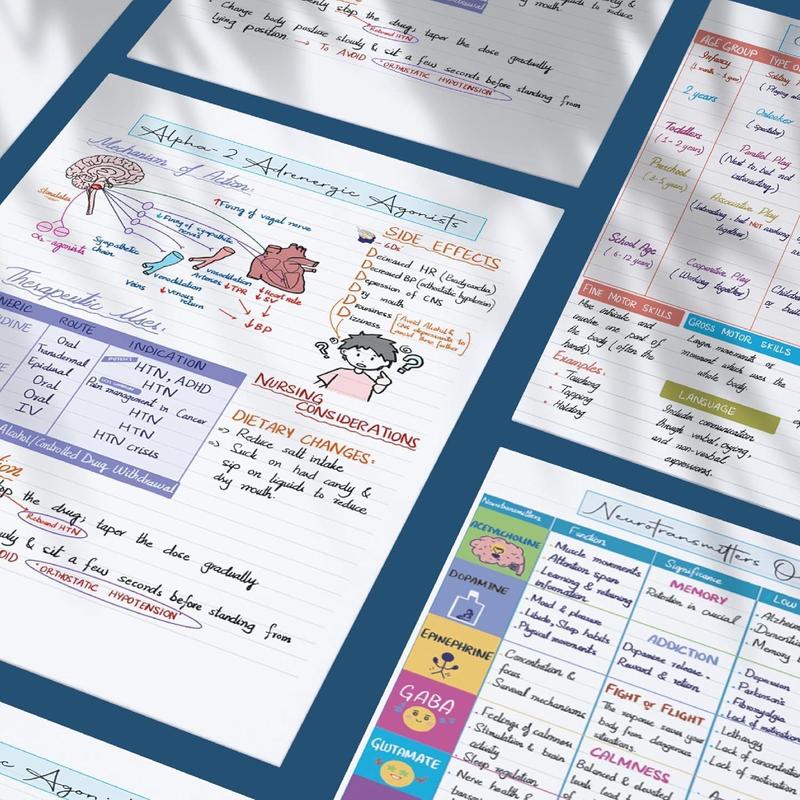 stop the drug; taper the dose gradually
Rebound HTN
Change body posture slowly & sit a few seconds before standing from
lying position. → TO AVOID ORTHOSTATIC HYPOTENSION
mouth
Alpha-2 Adrenergic Agonists
Mechanism of Action:
Stimulates
α₂-agonists
Sympathetic
chain
↑Firing of vagal nerve
↓Firing of sympathetic
nerves
Veins
vasodilation
↓venous
return
vasodilation
Arteries
↓TPR
↓Heart rate
↓SV
↓BP
SIDE EFFECTS
6Ds
Decreased HR (Bradycardia)
Decreased BP (orthostatic hypotension)
Depression of CNS
Dry mouth
Drowsiness
Dizziness
Avoid Alcohol &
CNS depressants to
avoid these further
Therapeutic Uses:
ROUTE
INDICATION
Oral
Transdermal
Epidural
Oral
Oral
IV
HTN, ADHD
HTN
Pain management in Cancer
HTN
HTN
HTN crisis
Alcohol/Controlled Drug Withdrawal
NURSING
CONSIDERATIONS
DIETARY CHANGES:
⇒ Reduce salt intake
⇒ Suck on hard candy &
sip on liquids to reduce
dry mouth.
the drug; taper the dose gradually
Rebound HTN
& sit a few seconds before standing from
ORTHOSTATIC HYPOTENSION
AGE GROUP
TYPE
Infancy
(1 month - 1 year)
2 years
Onlooker
(spectator)
Toddlers
(1-2 years)
Parallel Play
(Next to, but not
interacting)
Preschool
(3-5 years)
Associative Play
(Interacting, but NOT working
together)
School Age
(6-12 years)
Cooperative Play
(Working together)
FINE MOTOR SKILLS
More delicate and
involve one part of
the body (often the
hands).
Examples:
• Touching
• Tapping
• Holding
GROSS MOTOR SKILLS
Larger movements
movement which uses the
whole body.
LANGUAGE
Includes communication
through verbal, crying,
and non-verbal
expressions.
Neurotransmitters
Neurotransmitters
Function
Significance
LOW
ACETYLCHOLINE
- Muscle movements
- Attention span
- Learning & retaining
information
MEMORY
Retention is crucial
DOPAMINE
- Mood & pleasure
- Libido, Sleep habits
- Physical movements
ADDICTION
Dopamine release -
Reward & return
- Depression
- Parkinson's
- Fibromyalgia
- Lack of motivation
EPINEPHRINE
- Concentration &
focus
- Survival mechanisms
FIGHT or FLIGHT
The response saves your
body from dangerous
situations.
- Lethargy
- Lack of concentration
- Lack of
GABA
- Feelings of calmness
- Stimulation & brain
activity
- Sleep regulation
CALMNESS
Balanced & elevated
GLUTAMATE
- Nerve health &